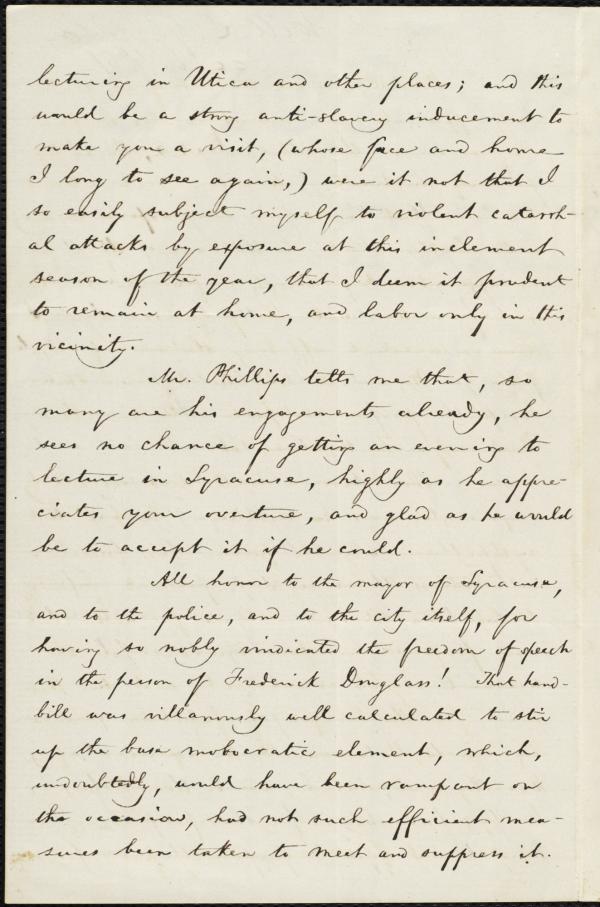 lecturing in Utica and other places; and this
would be a strong anti-slavery inducement to
make you a visit, (whose face and home
I long to see again,) were it not that I
so easily subject myself to violent catarrh-
al attacks by exposure at this inclement
season of the year, that I deem it prudent
to remain at home, and labor only in this
vicinity.
Mr. Phillips tells me that, so
many are his engagements already, he
sees no chance of getting an evening to
lecture in Syracuse, highly as he appre-
ciates your overture, and glad as he would
be to accept it if he could.
All honor to the mayor of Syracuse,
and to the police, and to the city itself, for
having so nobly vindicated the freedom of speech
in the person of Frederick Douglass! That hand-
bill was villanously well calculated to stir
up the base mobocratic element, which,
undoubtedly, would have been rampant on
the occasion, had not such efficient mea-
sures been taken to meet and suppress it.